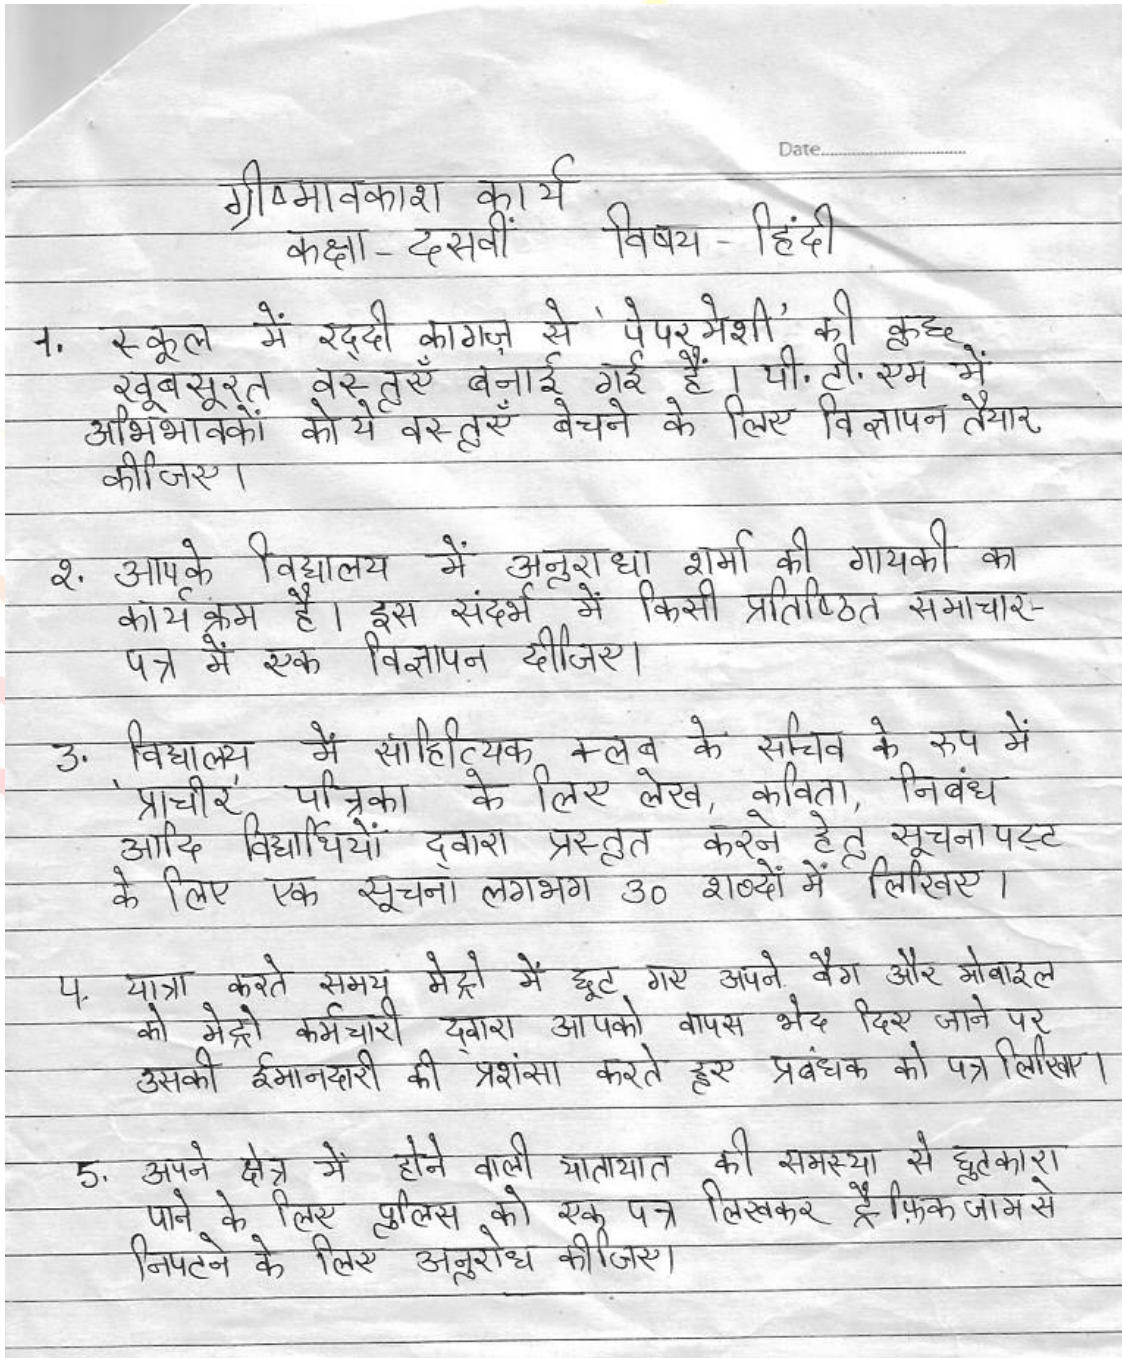 Date
ग्रीष्मावकाश कार्य
कक्षा - दसवीं विषय - हिंदी
1. स्कूल में रद्दी कागज़ से 'पेपरमेशी' की कुछ
खूबसूरत वस्तुएँ बनाई गई हैं। पी.टी.एम में
अभिभावकों को ये वस्तुएँ बेचने के लिए विज्ञापन तैयार
कीजिए।
२. आपके विद्यालय में अनुराधा शर्मा की गायकी का
कार्यक्रम है। इस संदर्भ में किसी प्रतिष्ठित समाचार-
पत्र में एक विज्ञापन दीजिए।
3. विद्यालय में साहित्यिक क्लब के सचिव के रुप में
'प्राचीर' पत्रिका के लिए लेख, कविता, निबंध
आदि विद्यार्थियों द्वारा प्रस्तुत करने हेतु सूचना पट्ट
के लिए एक सूचना लगभग 30 शब्दों में लिखिए।
4. यात्रा करते समय मेट्रो में छूट गए अपने बैग और मोबाइल
को मेट्रो कर्मचारी द्वारा आपको वापस भेद दिए जाने पर
उसकी ईमानदारी की प्रशंसा करते हुए प्रबंधक को पत्र लिखिए।
5. अपने क्षेत्र में होने वाली यातायात की समस्या से छुटकारा
पाने के लिए पुलिस को एक पत्र लिखकर ट्रैफ़िक जाम से
निपटने के लिए अनुरोध कीजिए।